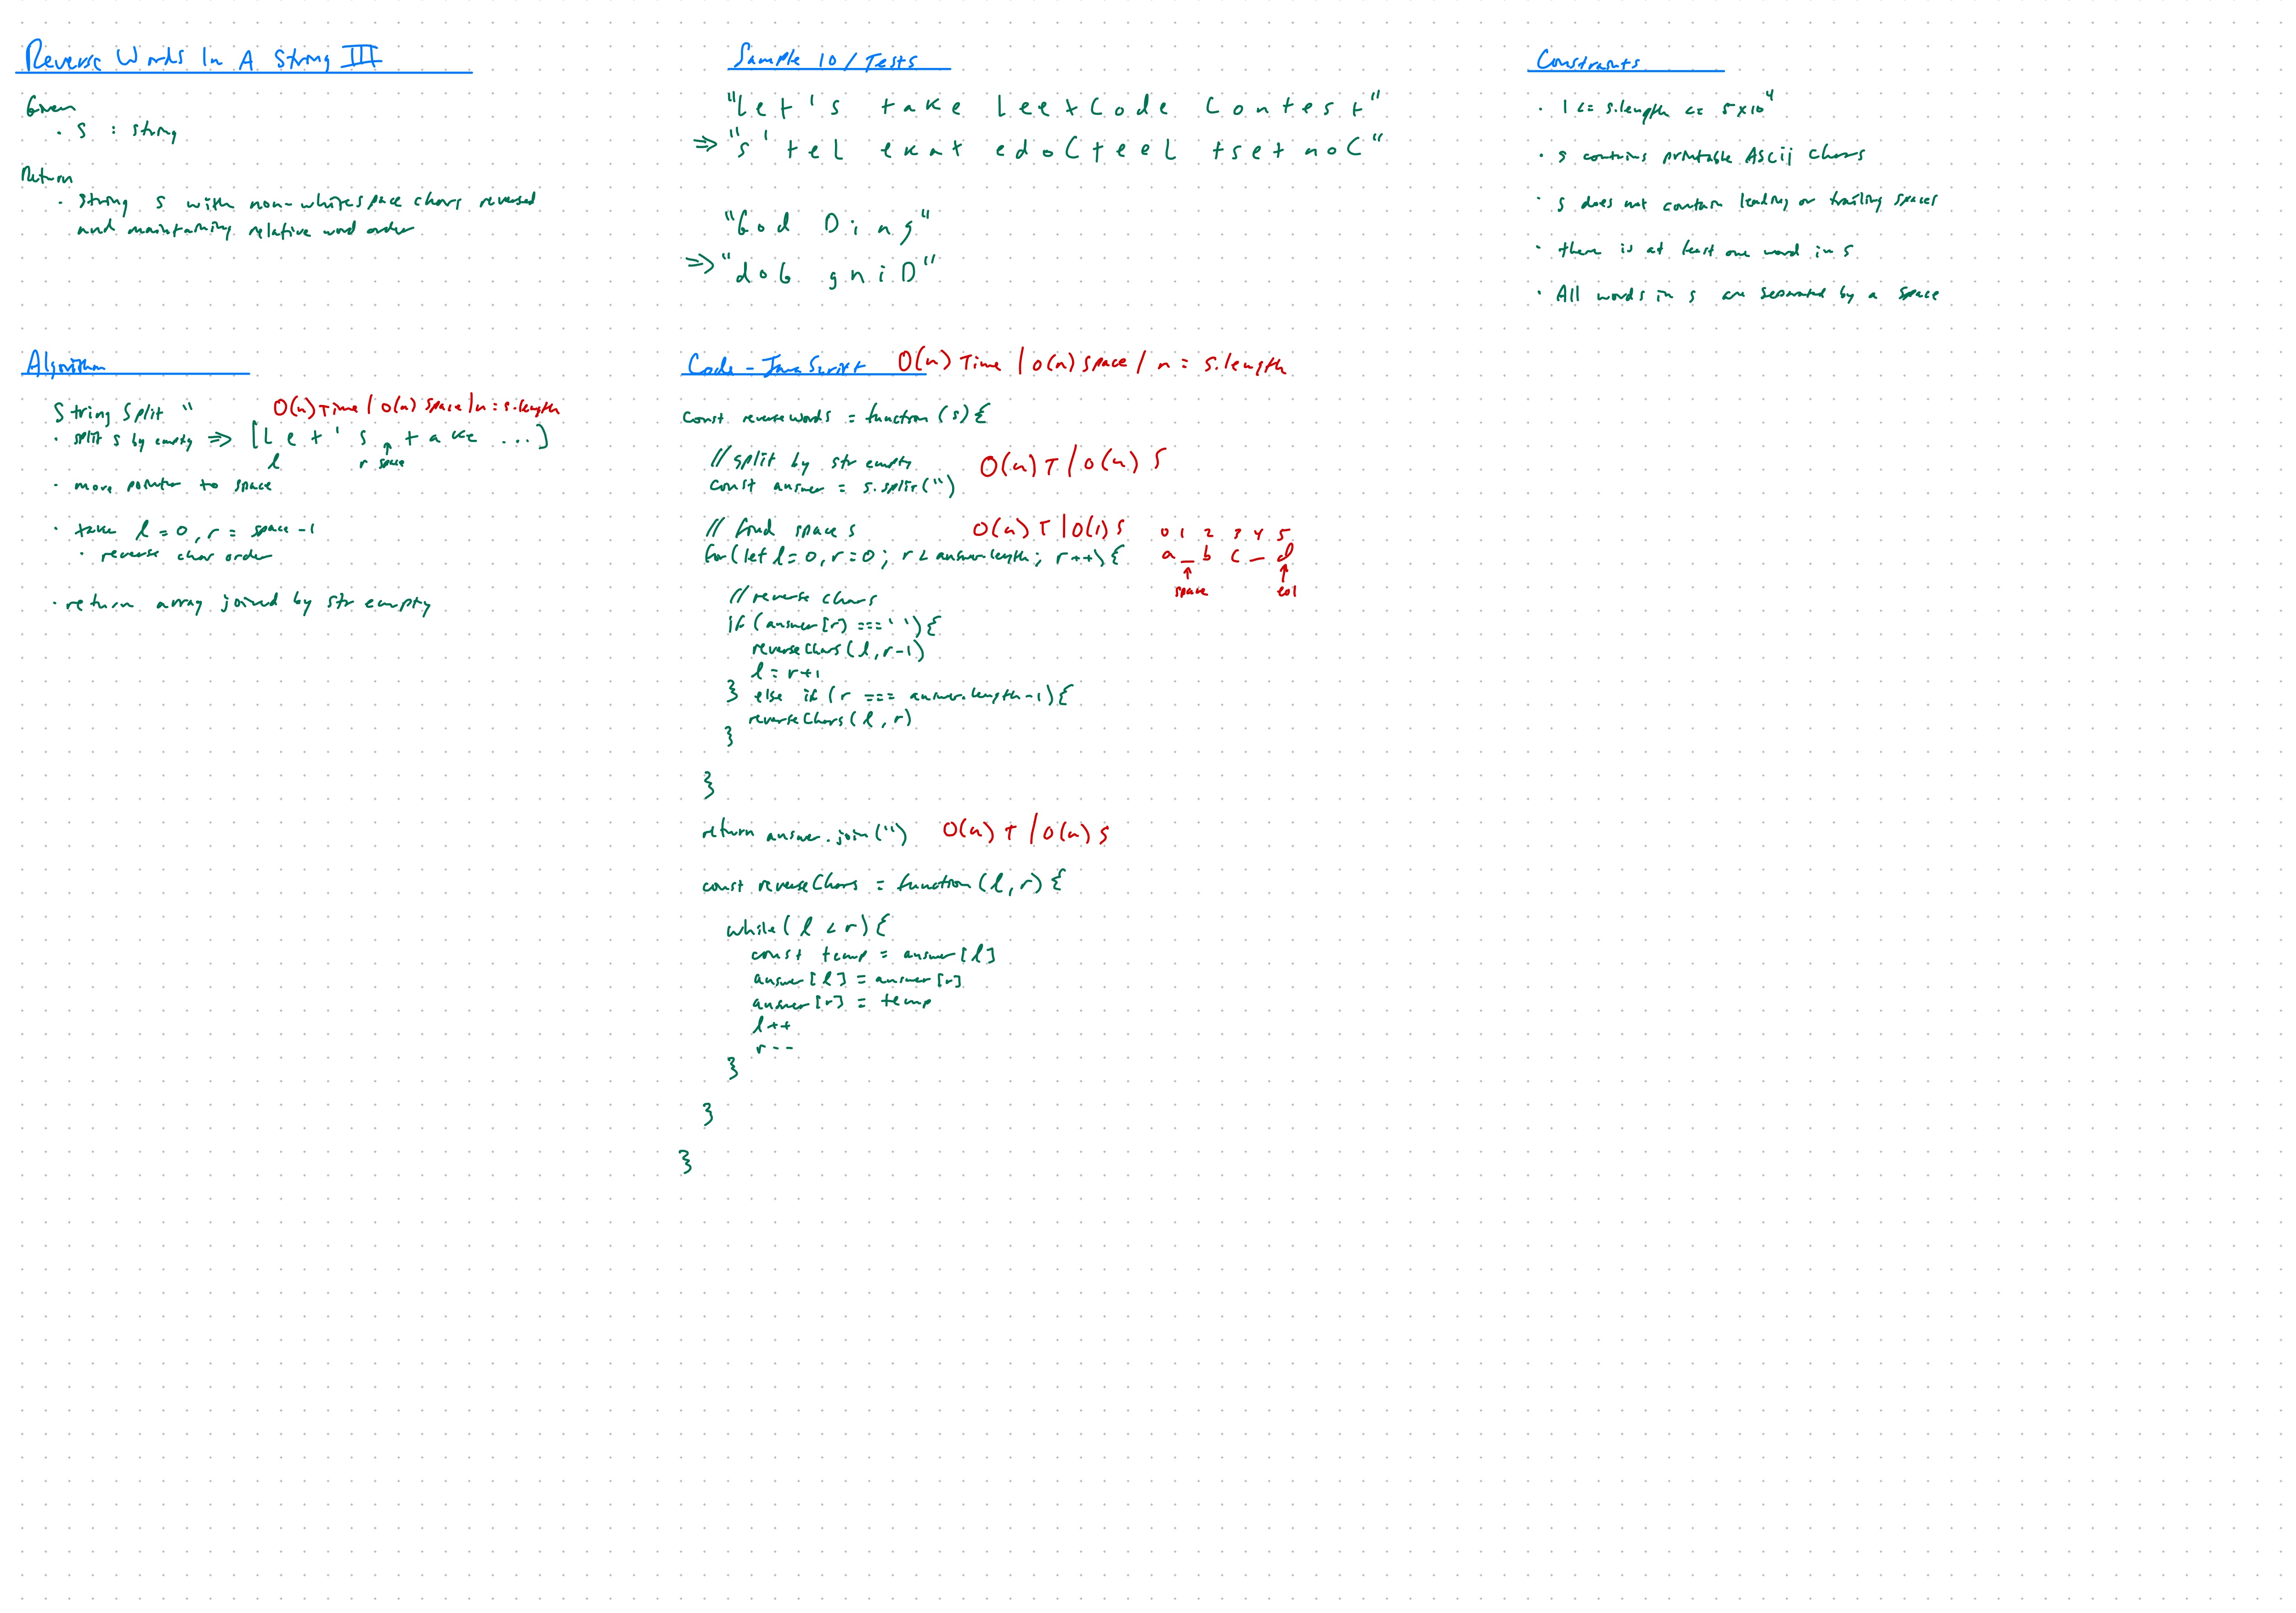 Reverse Words In A String III
Given
· s : string
Return
· string s with non-whitespace chars reversed
and maintaining relative word order
Sample IO / Tests
"Let's take LeetCode contest"
⇒ "s'teL ekat edoCteeL tsetnoC"
"God Ding"
⇒ "doG gniD"
Constraints
· 1 <= s.length <= 5x10⁴
· s contains printable ASCII chars
· s does not contain leading or trailing spaces
· there is at least one word in s
· All words in s are separated by a space
Algorithm
String Split ''
O(n) Time / O(n) Space / n = s.length
· split s by empty ⇒ [L e t ' s t a k e ...]
l r space
· move pointer to space
· take l = 0, r = space -1
· reverse char order
· return array joined by str empty
Code - JavaScript O(n) Time / O(n) Space / n = s.length
const reverseWords = function (s) {
// split by str empty O(n) T / O(n) S
const answer = s.split('')
// find spaces O(n) T | O(1) S 0 1 2 3 4 5
for (let l = 0, r = 0; r < answer.length; r++) { a _ b c _ d
space eol
// reverse chars
if (answer[r] === ' ') {
reverseChars(l, r-1)
l = r+1
} else if (r === answer.length-1) {
reverseChars(l, r)
}
}
return answer.join('') O(n) T / O(n) S
const reverseChars = function (l, r) {
while (l < r) {
const temp = answer[l]
answer[l] = answer[r]
answer[r] = temp
l++
r--
}
}
}